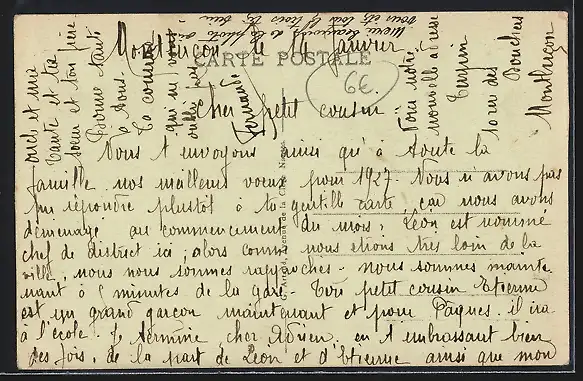 Montluçon le 14 Janvier
CARTE POSTALE
6€
Cher petit cousin
Nous t'envoyons ainsi qu'à toute la
famille nos meilleurs voeux pour 1927. Nous n'avons pas
pu répondre plustôt à ta gentille carte, car nous avons
déménagé au commencement du mois, Léon est nommé
chef de district ici, alors comme nous étions très loin de la
ville, nous nous sommes rapprochés. nous sommes mainte
nant à 5 minutes de la gare. Ton petit cousin Etienne
est un grand garçon maintenant et pour Pâques il ira
à l'école. Je termine cher Adrien, en t'embrassant bien
des fois, de la part de Léon et d'Etienne ainsi que mon
oncle et ma
tante et ta
soeur et ton frère
Bonne santé
à tous.
Ta cousine
qui ne vous
oublie pas
Fernande
Voici notre
nouvelle adresse
rue des Bouchers
Montluçon
Merci beaucoup de la photo
vous êtes tous